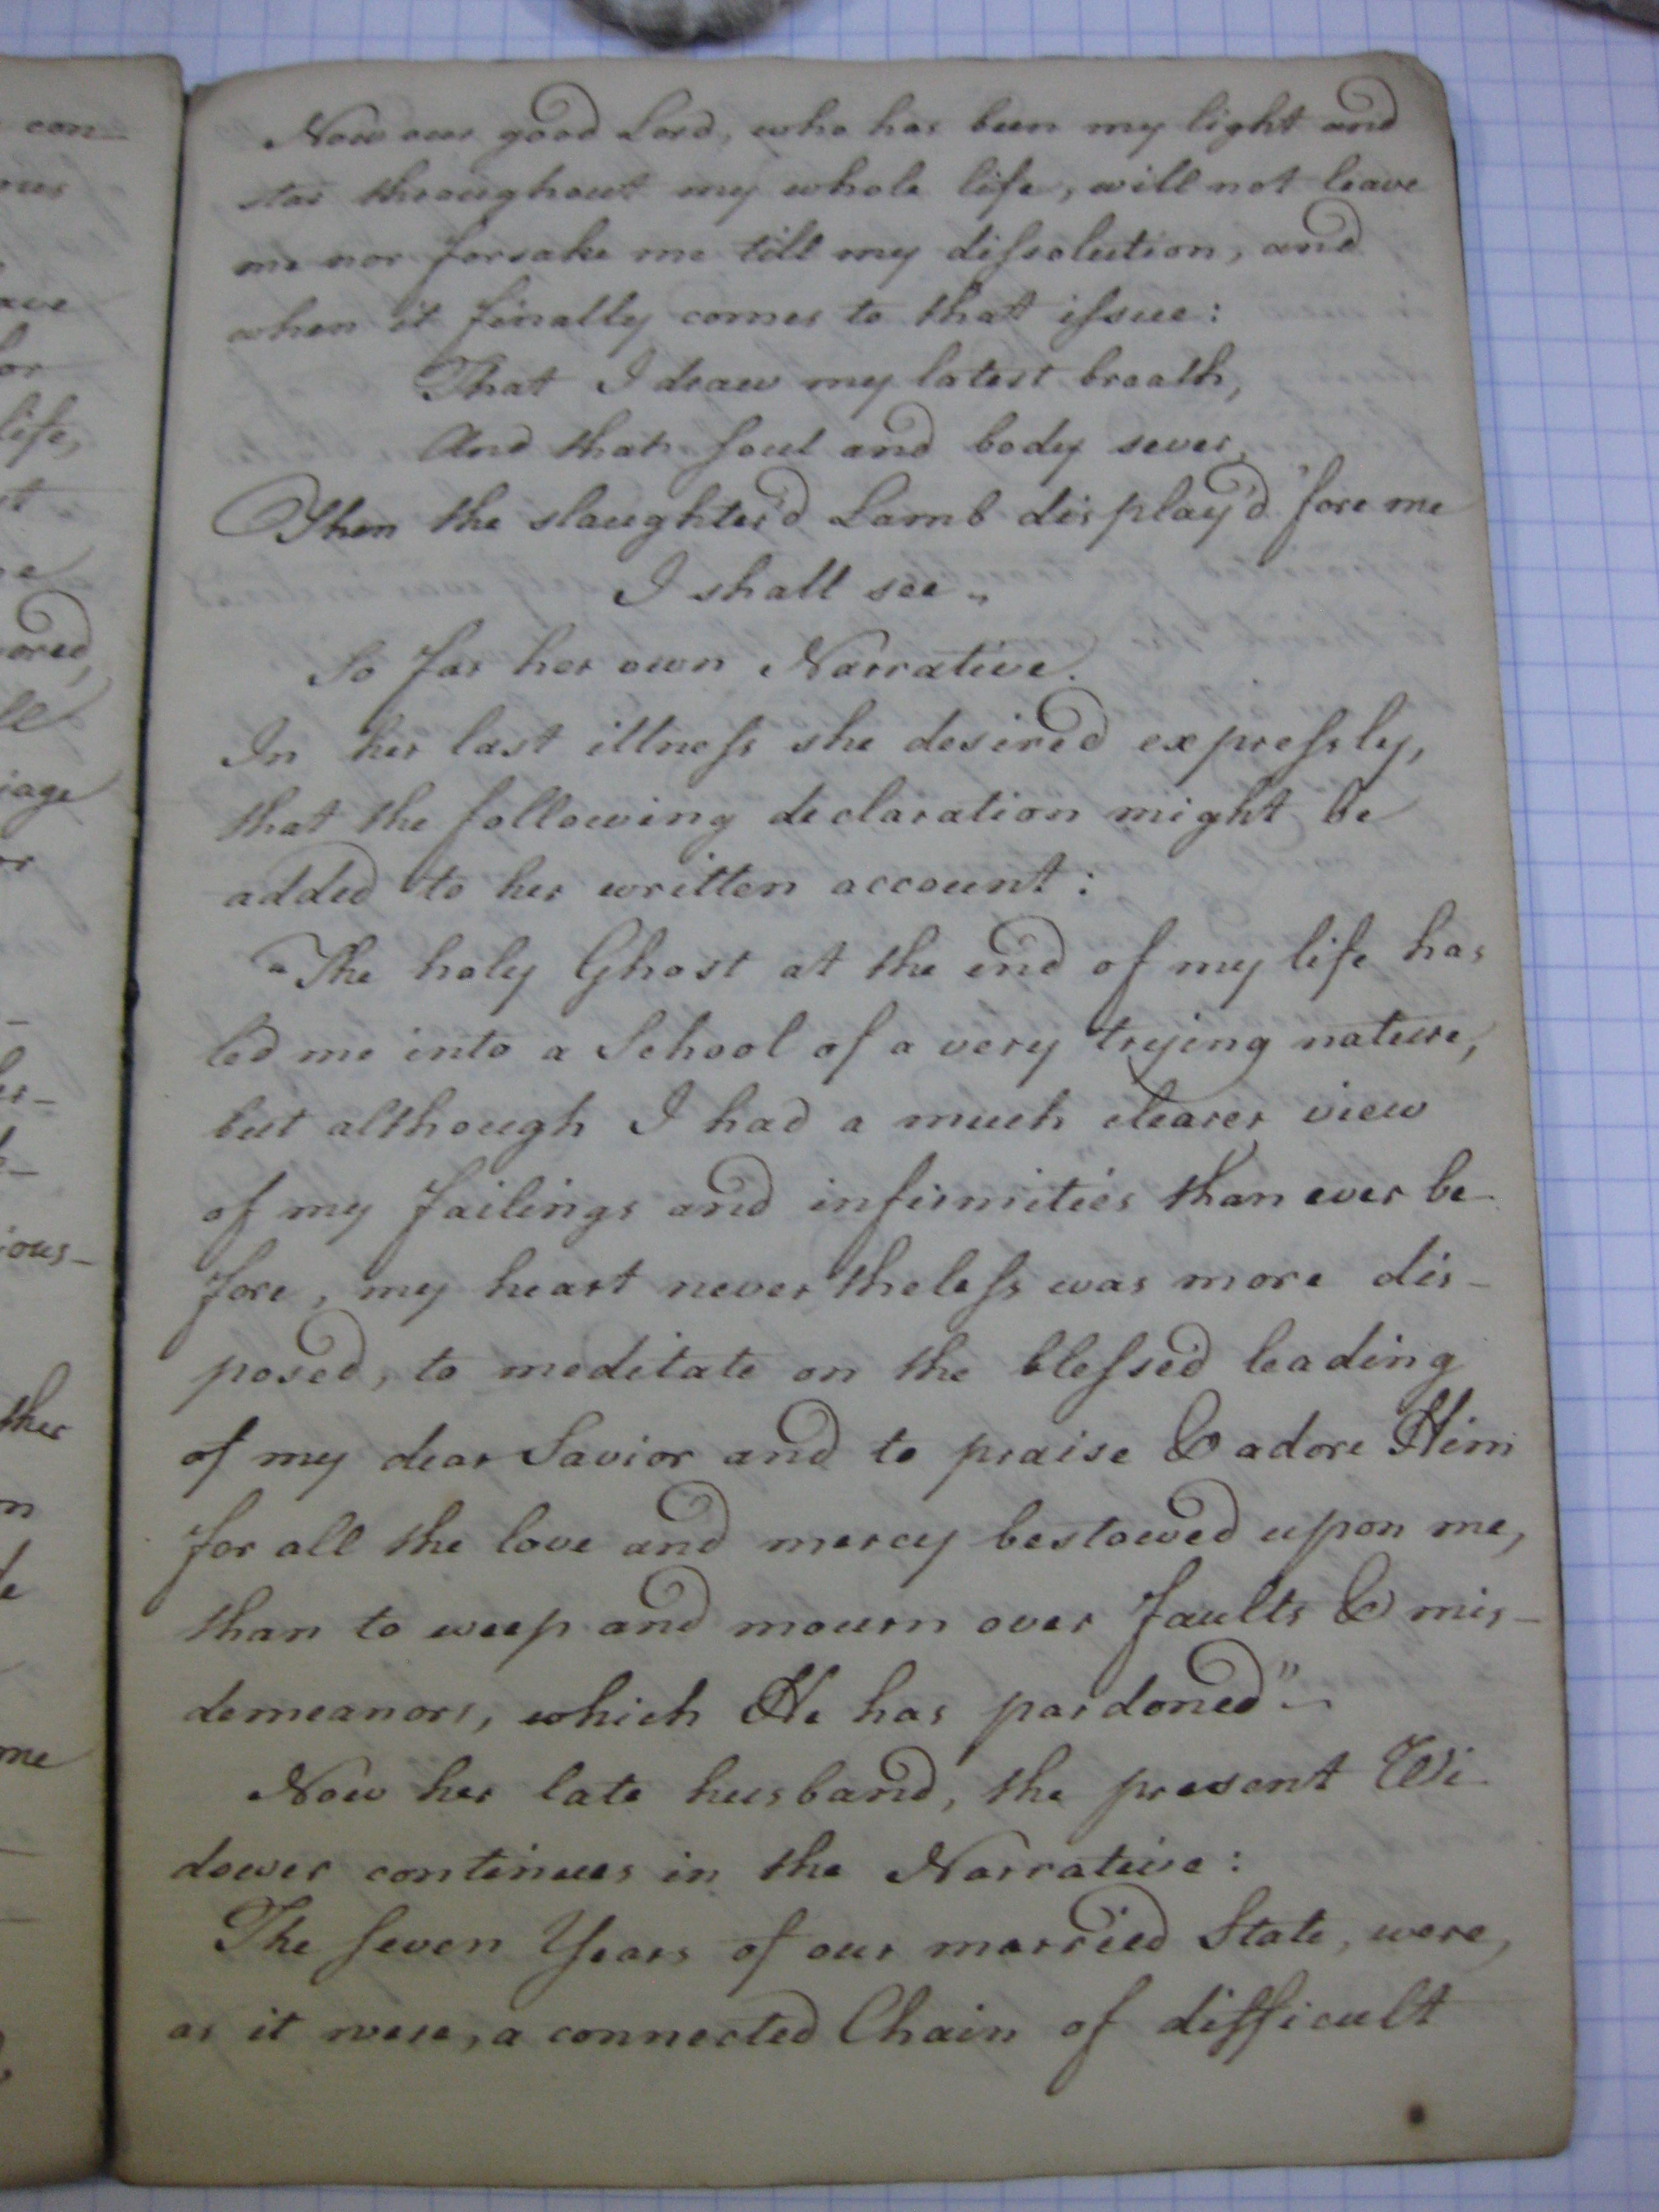 Now our good Lord, who has been my light and
star throughout my whole life, will not leave
me nor forsake me till my dißolution, and
when it finally comes to that ißue:
That I draw my latest breath,
And that Soul and body sever,
Then the slaughter'd Lamb display'd 'fore me
I shall see.
So far her own Narrative.
In her last illneß she desired expreßly,
that the following declaration might be
added to her written account:
"The holy Ghost at the end of my life has
led me into a School of a very trying nature,
but although I had a much clearer view
of my failings and infirmities than ever be-
fore, my heart nevertheleß was more dis-
posed, to meditate on the bleßed leading
of my dear Savior and to praise & adore Him
for all the love and mercy bestowed upon me,
than to weep and mourn over faults & mis-
demeanors, which He has pardoned"
Now her late husband, the present Wi-
dower continues in the Narrative:
The Seven Years of our married State, were,
as it were, a connected Chain of difficult